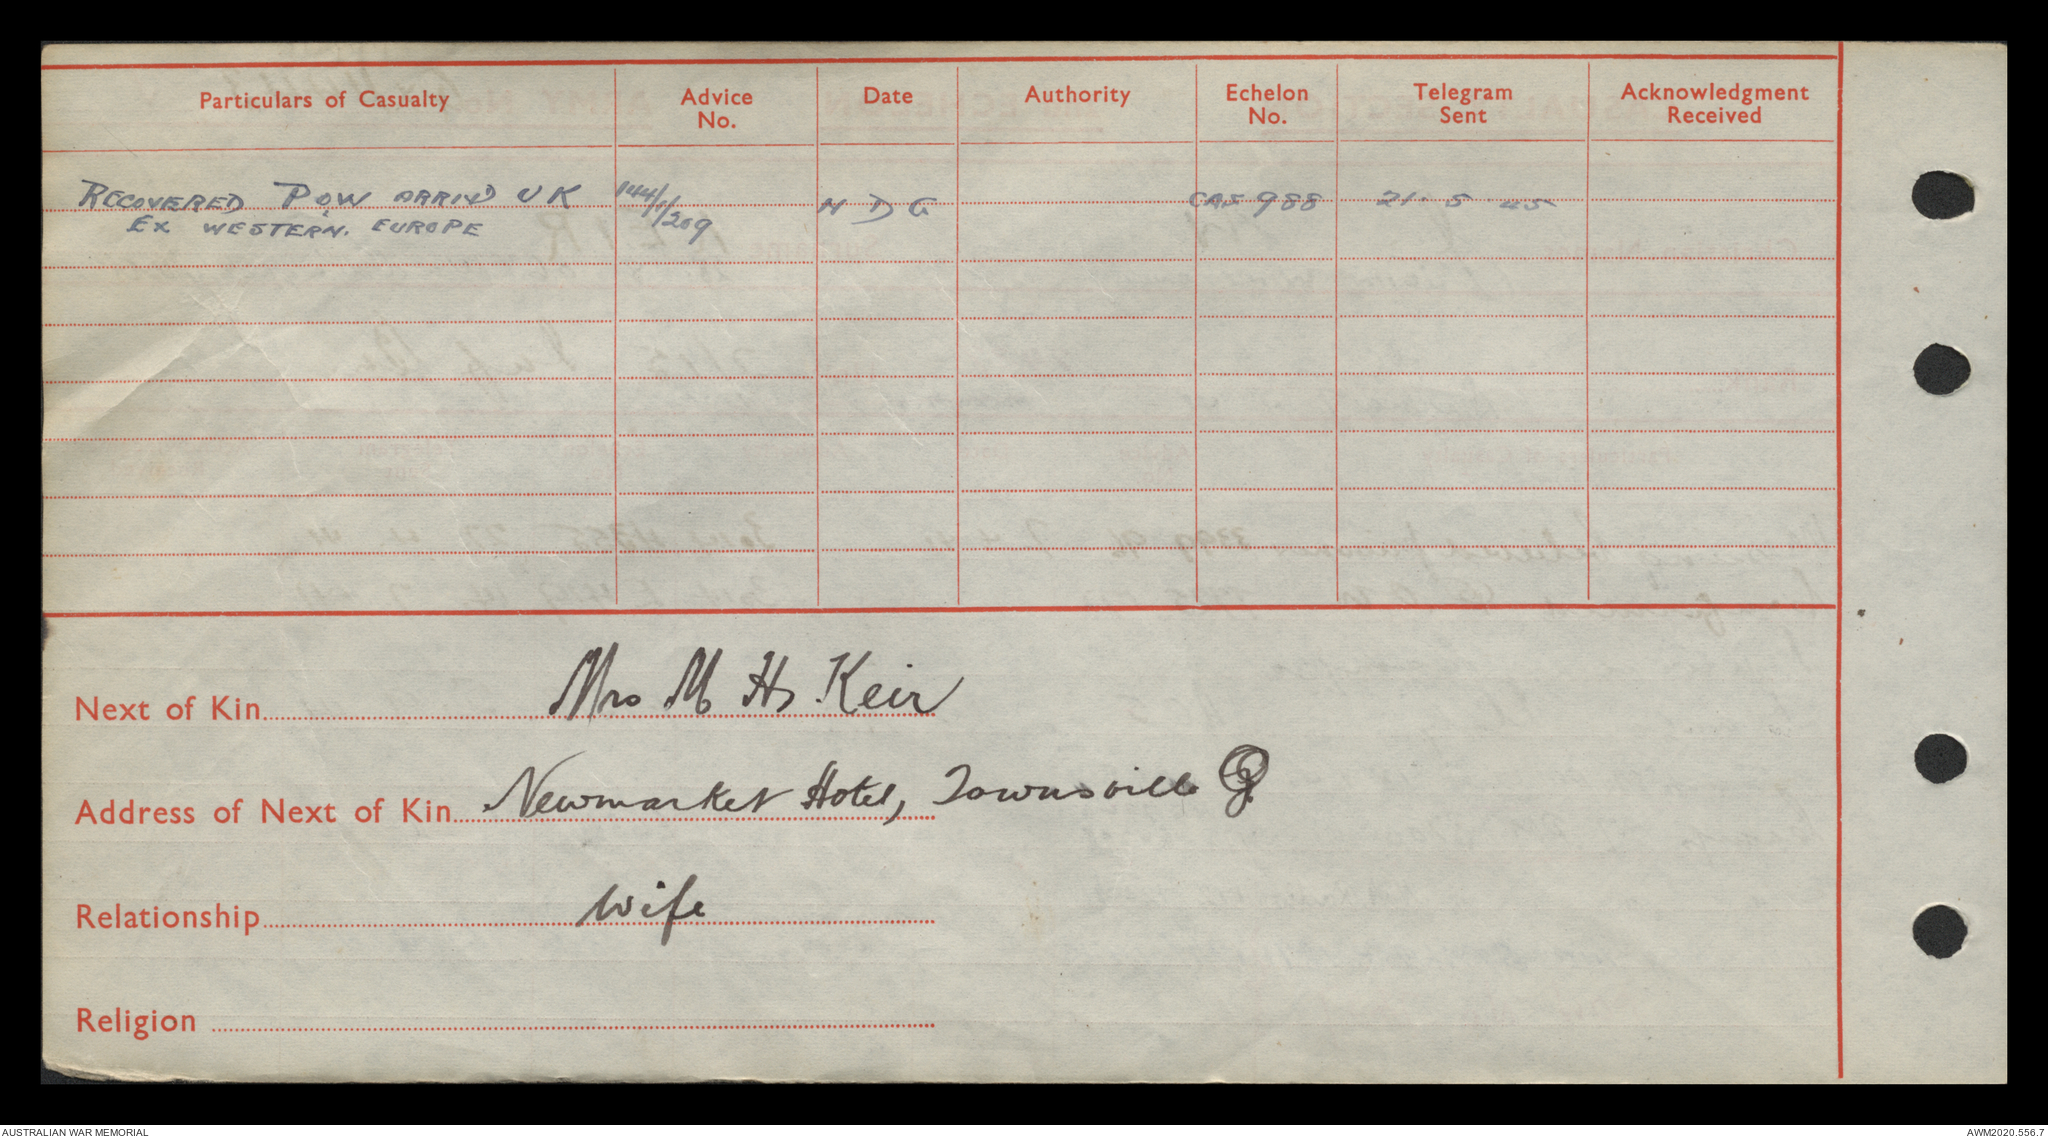 Particulars of Casualty Advice No. Date Authority Echelon No. Telegram Sent Acknowledgment Received
RECOVERED POW ARRIV'D UK 144/1/209 N D G CAS 988 21.5.45
EX WESTERN. EUROPE
Next of Kin Mrs M H Keir
Address of Next of Kin Newmarket Hotel, Townsville Q
Relationship Wife
Religion
AUSTRALIAN WAR MEMORIAL AWM2020.556.7